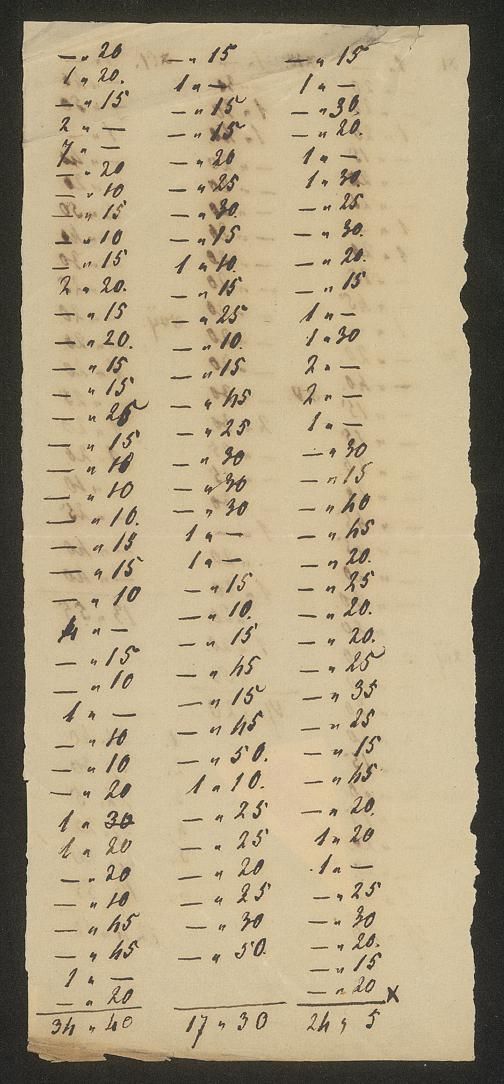 — " 20
1 " 20.
— " 15
2 " —
7 " —
— " 20
— " 10
— " 15
— " 10
— " 15
2 " 20.
— " 15
— " 20.
— " 15
— " 15
— " 25
— " 15
— " 10
— " 10
— " 10.
— " 15
— " 15
— " 10
4 " —
— " 15
— " 10
1 " —
— " 10
— " 10
— " 20
1 " 30
1 " 20
— " 20
— " 10
— " 45
— " 45
1 " —
— " 20
34 " 40
— " 15
1 " —
— " 15
— " 15
— " 20
— " 25
— " 30
— " 15
1 " 10.
— " 15
— " 25
— " 10.
— " 15
— " 45
— " 25
— " 30
— " 30
— " 30
1 " —
1 " —
— " 15
— " 10.
— " 15
— " 45
— " 15
— " 45
— " 50.
1 " 10.
— " 25
— " 25
— " 20
— " 25
— " 30
— " 50.
17 " 30
— " 15
1 " —
— " 30.
— " 20.
1 " —
1 " 30.
— " 25
— " 30.
— " 20.
— " 15
1 " —
1 " 30
2 " —
2 " —
1 " —
— " 30
— " 15
— " 40
— " 45
— " 20.
— " 25
— " 20.
— " 20.
— " 25
— " 35
— " 25
— " 15
— " 45
— " 20.
1 " 20
1 " —
— " 25
— " 30
— " 20.
— " 15
— " 20 x
24 " 5